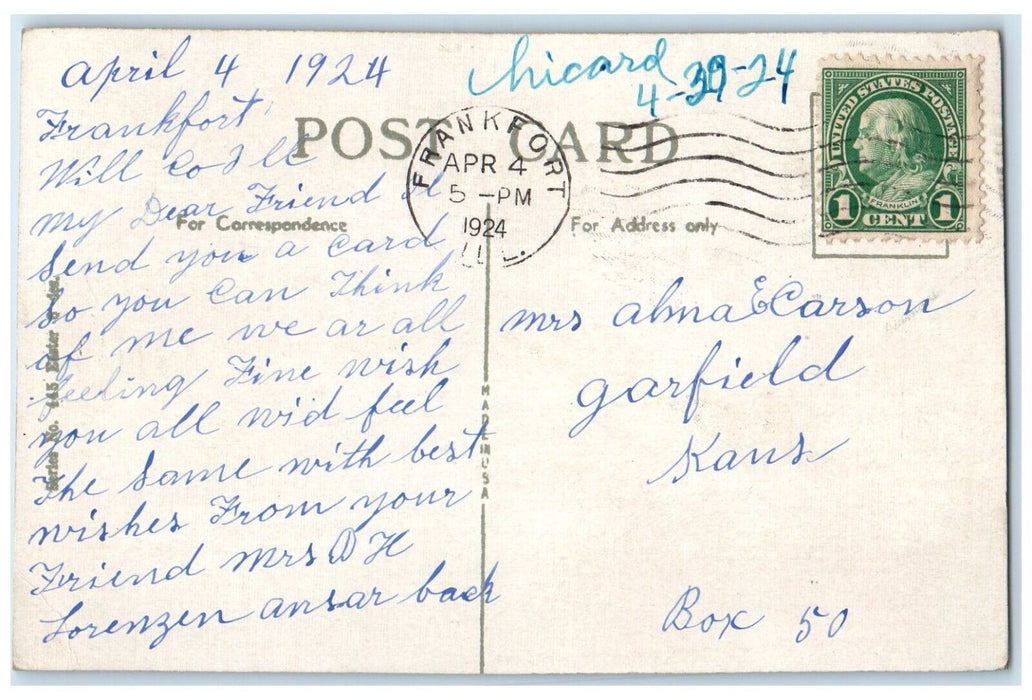 april 4 1924
Frankfort
Will Co Ill
my Dear Friend il
send you a card
so you can Think
of me we ar all
feeling Fine wish
you all wid feel
The same with best
wishes From your
Friend Mrs D H
Lorenzen ansar back
POST CARD
For Correspondence
For Address only
Series No. 445 Easter
MADE IN USA
FRANKFORT
APR 4
5 - PM
1924
ILL.
4-29-24
UNITED STATES POSTAGE
FRANKLIN
1 CENT 1
mrs alma E Carson
garfield
Kans
Box 50